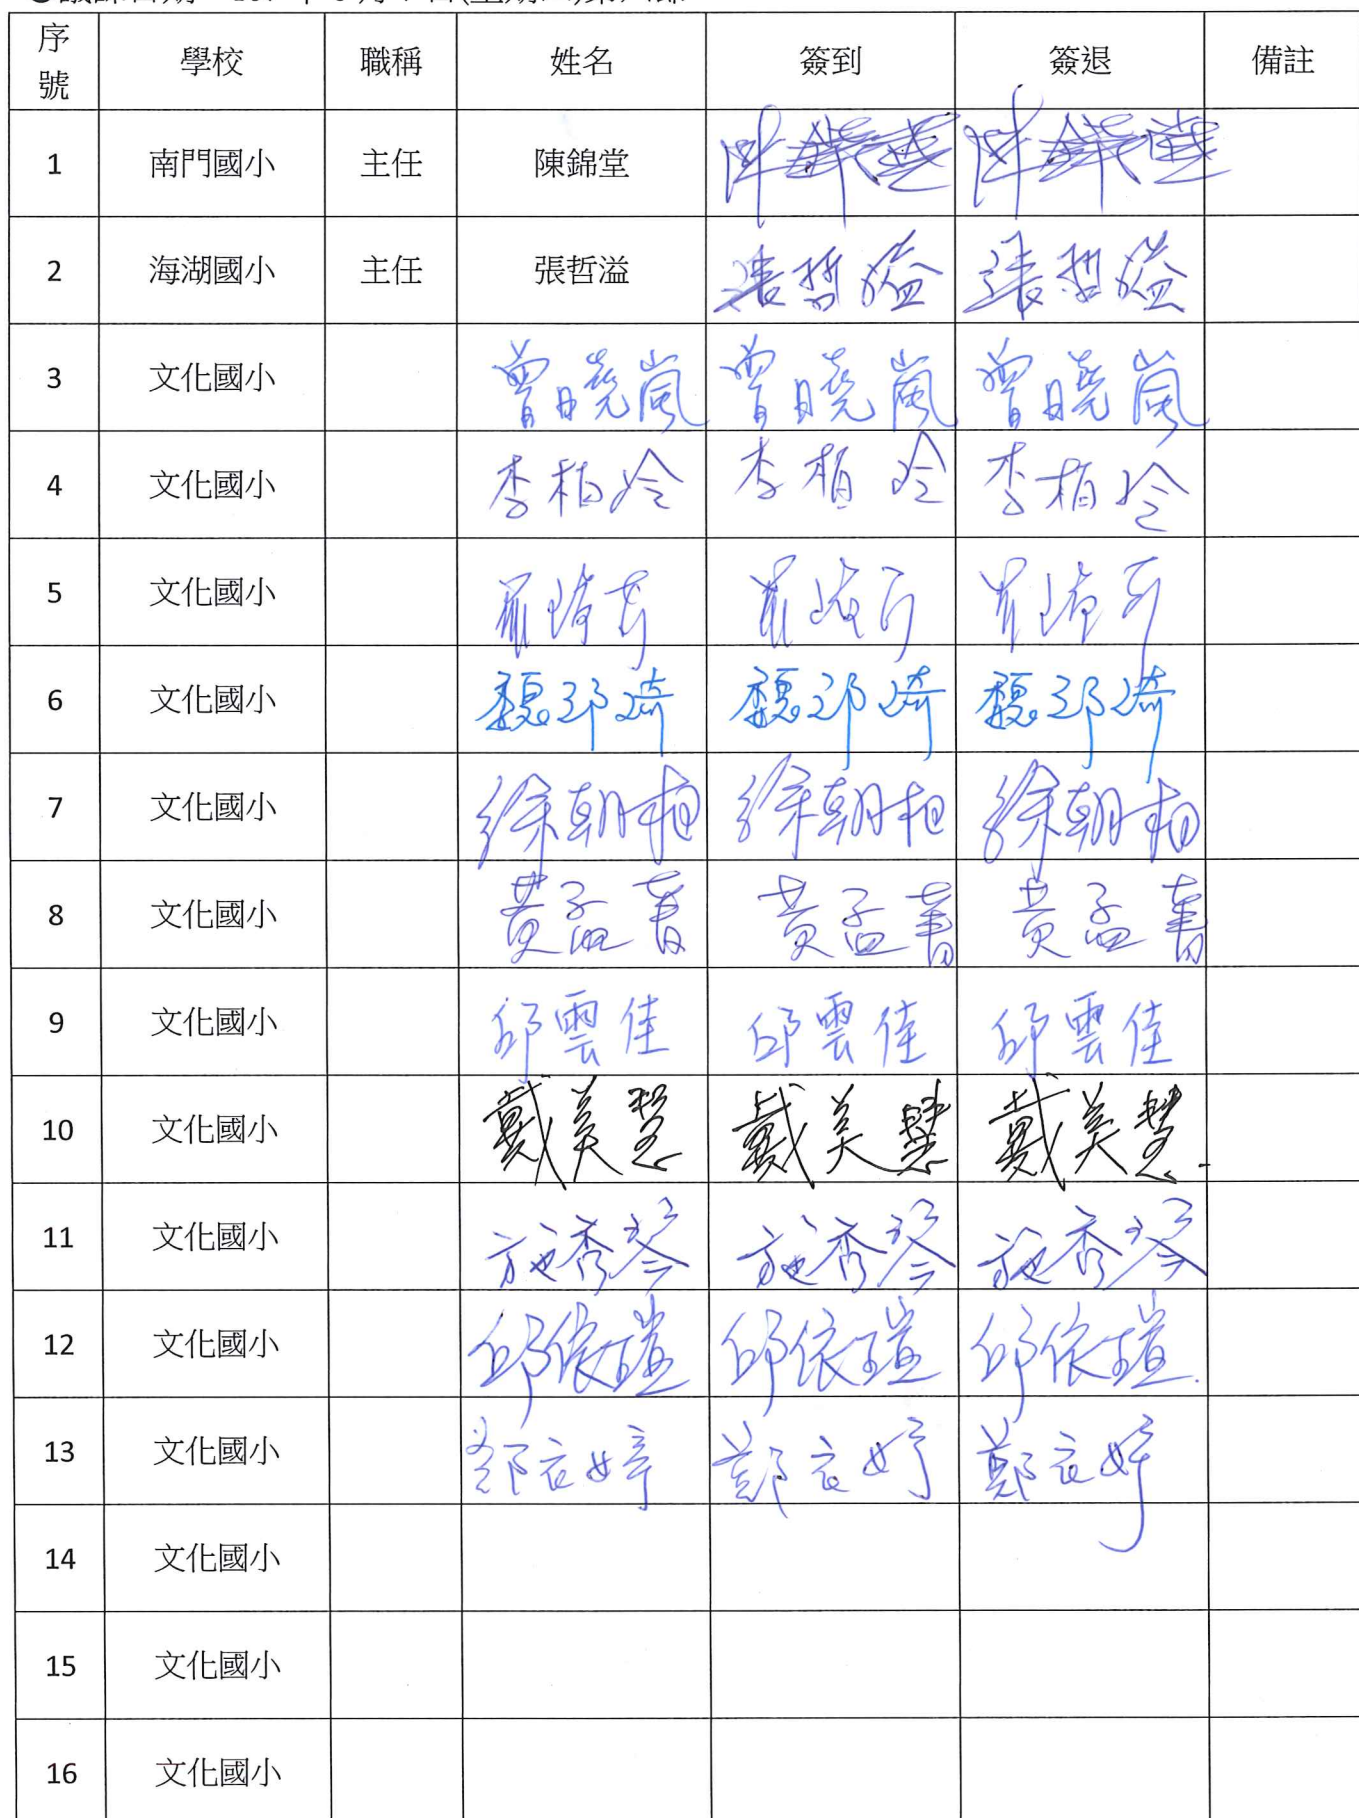 序號 學校 職稱 姓名 簽到 簽退 備註
1 南門國小 主任 陳錦堂 陳錦堂 陳錦堂
2 海湖國小 主任 張哲溢 張哲溢 張哲溢
3 文化國小 曾曉嵐 曾曉嵐 曾曉嵐
4 文化國小 李柏玲 李柏玲 李柏玲
5 文化國小
6 文化國小 魏邵琦 魏邵琦 魏邵琦
7 文化國小 徐朝柏 徐朝柏 徐朝柏
8 文化國小 黃孟菁 黃孟菁 黃孟菁
9 文化國小 邱雲佳 邱雲佳 邱雲佳
10 文化國小 戴美慧 戴美慧 戴美慧
11 文化國小 施秀琴 施秀琴 施秀琴
12 文化國小 邱依瑄 邱依瑄 邱依瑄
13 文化國小 鄭衣婷 鄭衣婷 鄭衣婷
14 文化國小
15 文化國小
16 文化國小